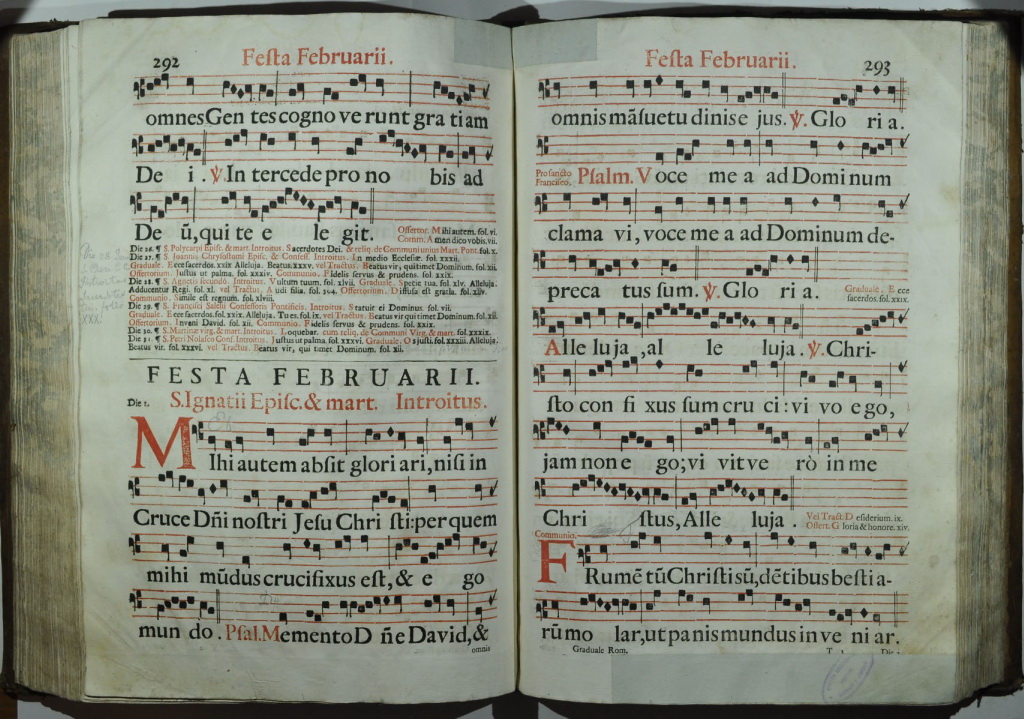 292
Feſta Februarii.
omnes Gen tes cogno ve runt gra tiam
De i. ℣. In tercede pro no bis ad
De ū, qui te e le git.
Offertor. Mihi autem. fol. vi.
Comm. Amen dico vobis. vii.
Die 26. ¶ S. Polycarpi Epiſc. & mart. Introitus. Sacerdotes Dei. & reliq. de Communi unius Mart. Pont. fol. x.
Die 27. ¶ S. Joannis Chryſoſtomi Epiſc. & Confeſſ. Introitus. In medio Eccleſiæ. fol. xxxii.
Graduale. Ecce ſacerdos. fol. xxix Alleluja. Beatus. xxxv. vel Tractus. Beatus vir, qui timet Dominum. fol. xii.
Offertorium. Juſtus ut palma. fol. xxxiv. Communio. Fidelis ſervus & prudens. fol. xxix.
Die 28. ¶ S. Agnetis ſecundo. Introitus. Vultum tuum. fol. xlvii. Graduale. Specie tua. fol. xlv. Alleluja.
Adducentur Regi. fol. xl. vel Tractus. Audi filia. fol. 304. Offertorium. Diffuſa eſt gratia. fol. xliv.
Communio. Simile eſt regnum. fol. xlviii.
Die 29. ¶ S. Franciſci Saleſii Confeſſoris Pontificis. Introitus. Statuit ei Dominus. fol. vii.
Graduale. Ecce ſacerdos. fol. xxix. Alleluja. Tu es. fol. ix. vel Tractus. Beatus vir qui timet Dominum. fol. xii.
Offertorium. Inveni David. fol. xii. Communio. Fidelis ſervus & prudens. fol. xxix.
Die 30. ¶ S. Martinæ virg. & mart. Introitus. Loquebar. cum reliq. de Communi Virg. & mart. fol. xxxix.
Die 31. ¶ S. Petri Nolaſco Conf. Introitus. Juſtus ut palma. fol. xxxvi. Graduale. Os juſti. fol. xxxiii. Alleluja.
Beatus vir. fol. xxxvi. vel Tractus. Beatus vir, qui timet Dominum. fol. xii.
FESTA FEBRUARII.
Die 1. S. Ignatii Epiſc. & mart. Introitus.
MIhi autem abſit glori ari, niſi in
Cruce Dñi noſtri Jeſu Chri ſti: per quem
mihi mūdus crucifixus eſt, & e go
mun do. Pſal. Memento D ñe David, &
omnis
Feſta Februarii.
293
omnis māſuetu dinis e jus. ℣. Glo ri a.
Pro ſancto
Franciſco. Pſalm. Voce me a ad Domi num
clama vi, voce me a ad Dominum de-
preca tus ſum. ℣. Glo ri a. Graduale. Ecce
ſacerdos. fol. xxix.
Alle luja, al le luja. ℣. Chri-
ſto con fi xus ſum cru ci: vi vo ego,
jam non e go; vi vit ve rò in me
Chri ſtus, Alle luja. Vel Tract. Deſiderium. ix.
Offert. Gloria & honore. xiv.
Communio.
FRumē tū Chriſti sū, dētibus beſti a-
rū mo lar, ut panis mundus in ve ni ar.
Graduale Rom.